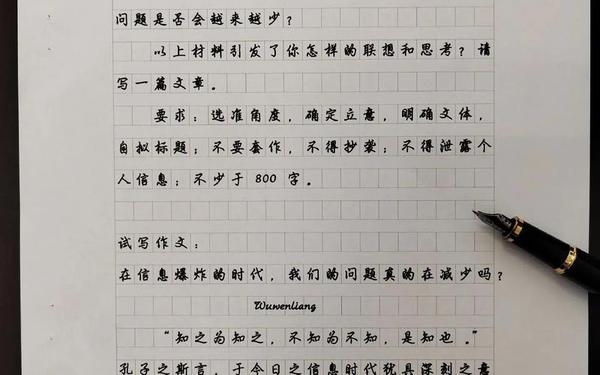 问题是否会越来越少？
以上材料引发了你怎样的联想和思考？请
写一篇文章。
要求：选准角度，确定立意，明确文体，
自拟标题；不要套作，不得抄袭；不得泄露个
人信息；不少于 800 字。
试写作文：
在信息爆炸的时代，我们的问题真的在减少吗？
Wuwenliang
“知之为知之，不知为不知，是知也。”
孔子之斯言，于今日之信息时代犹具深刻之意